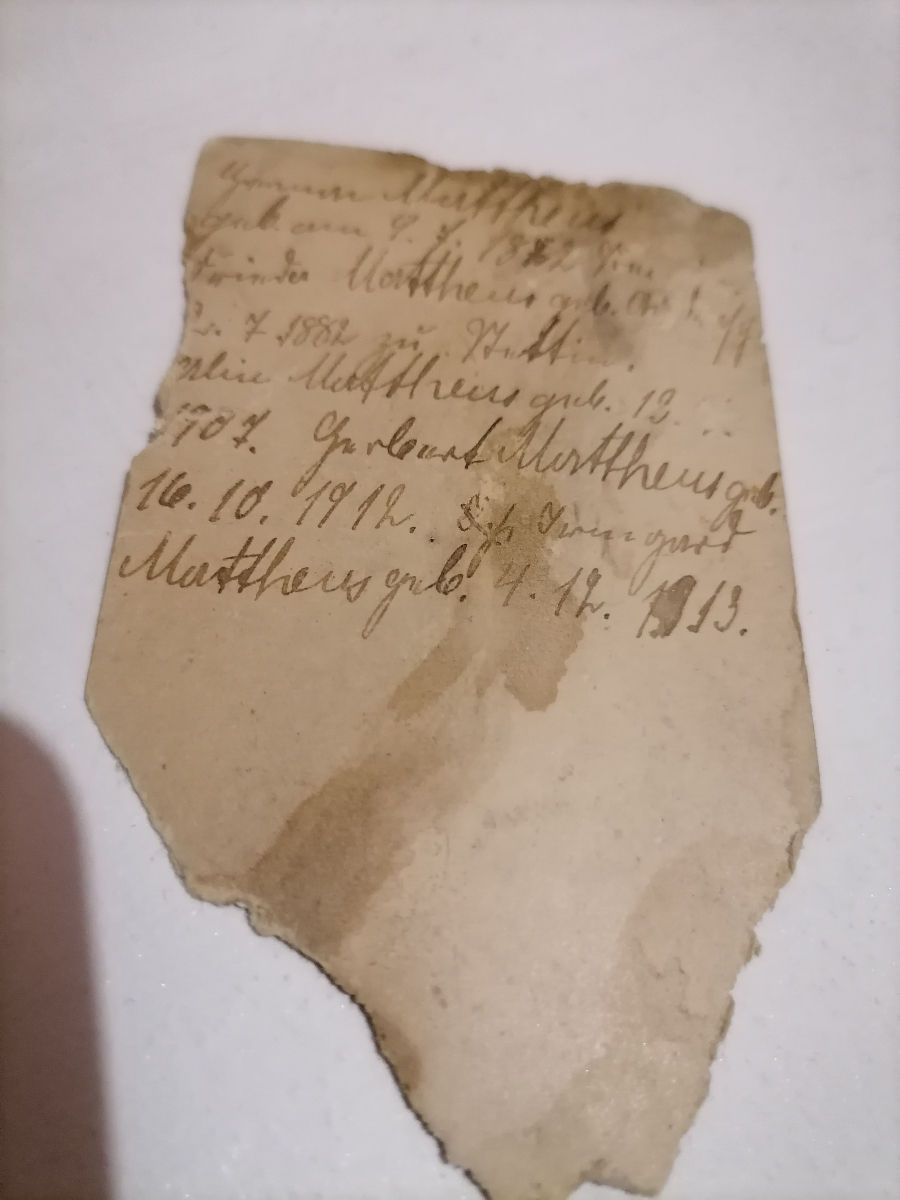 Mattheus
geb. am 9. 7. 1882
Frieda Mattheus geb.
7 1882 zu Stettin.
Mattheus geb. 12
1907. Gerhart Mattheus geb.
16. 10. 1912. Irmgard
Mattheus geb. 4. 12. 1913.